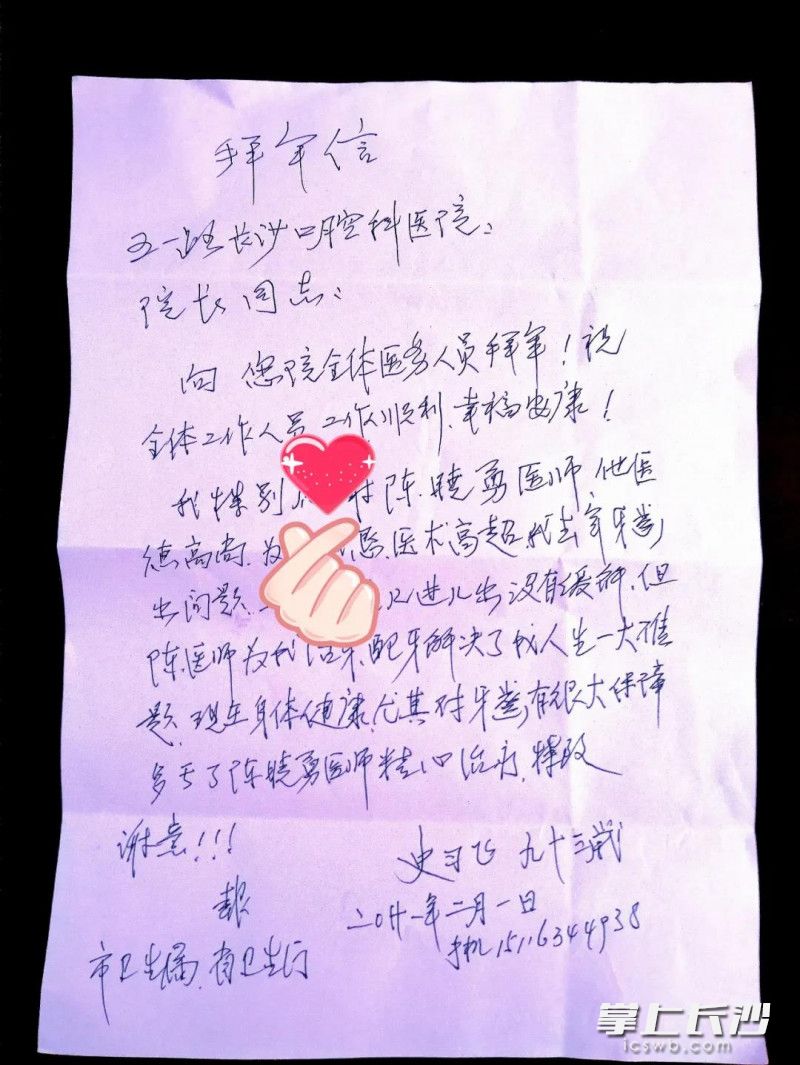 拜年信
五一路长沙口腔科医院:
院长同志:
向 您院全体医务人员拜年!祝
全体工作人员 工作顺利、幸福安康!
我特别 陈 晓勇医师、他医
德高尚、为 医术高超、我去年牙齿
出问题、 进儿出没有缓解、但
陈医师为我治牙、配牙解决了我人生一大难
题、现在身体健康、尤其对牙齿有很大保障
多亏了陈晓勇医师精心治疗、特致
谢意!!!
史习飞 九十三岁
报
二0二一年二月一日
手机15116344938
市卫生局、省卫生厅
掌上长沙
icswb.com